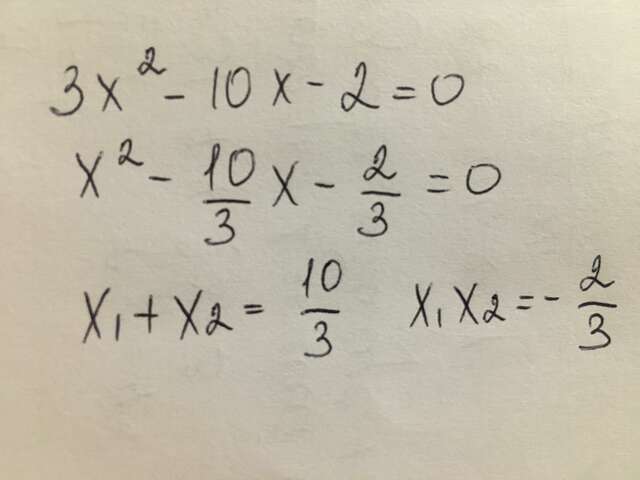 3x² - 10x - 2 = 0
x² - 10/3 x - 2/3 = 0
x₁ + x₂ = 10/3 x₁ x₂ = - 2/3